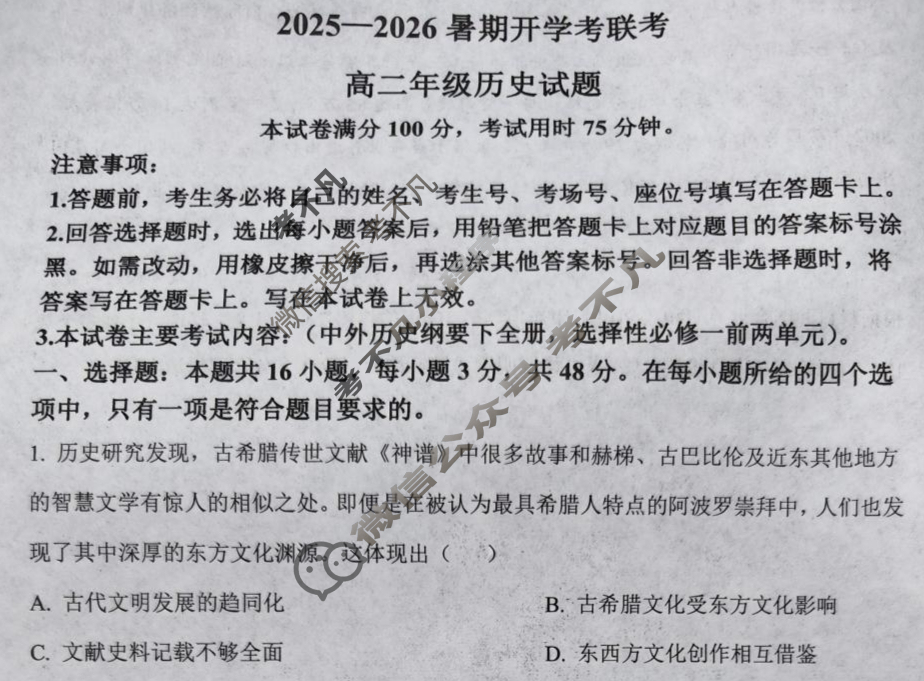 2025—2026 暑期开学考联考
高二年级历史试题
本试卷满分 100 分，考试用时 75 分钟。
注意事项：
1.答题前，考生务必将自己的姓名、考生号、考场号、座位号填写在答题卡上。
2.回答选择题时，选出每小题答案后，用铅笔把答题卡上对应题目的答案标号涂
黑。如需改动，用橡皮擦干净后，再选涂其他答案标号。回答非选择题时，将
答案写在答题卡上。写在本试卷上无效。
3.本试卷主要考试内容：（中外历史纲要下全册，选择性必修一前两单元）。
一、选择题：本题共 16 小题，每小题 3 分，共 48 分。在每小题所给的四个选
项中，只有一项是符合题目要求的。
1. 历史研究发现，古希腊传世文献《神谱》中很多故事和赫梯、古巴比伦及近东其他地方
的智慧文学有惊人的相似之处。即便是在被认为最具希腊人特点的阿波罗崇拜中，人们也发
现了其中深厚的东方文化渊源。这体现出（　　）
A. 古代文明发展的趋同化
B. 古希腊文化受东方文化影响
C. 文献史料记载不够全面
D. 东西方文化创作相互借鉴
考不凡
微信搜索 考不凡
考不凡小程序
微信公众号 考不凡